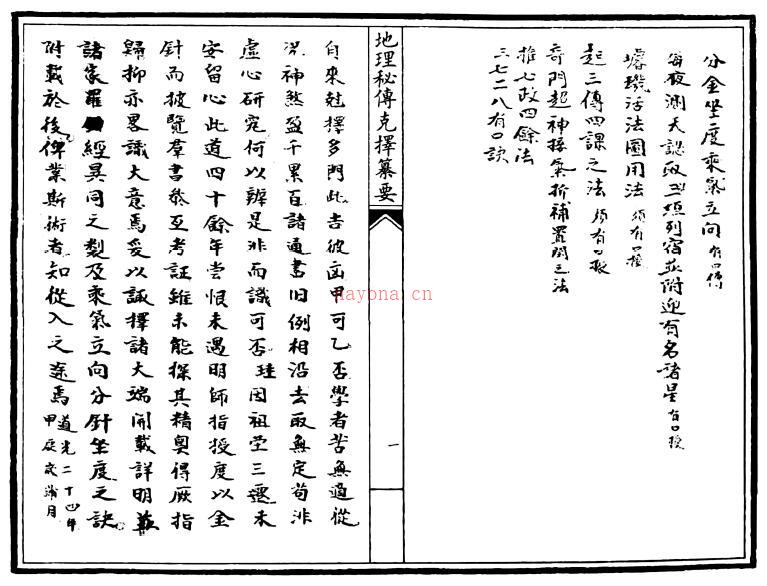 分金坐度乘氣立向 有口傳
每夜測天認取三垣列宿並附迎有名諸星 有口授
璿璣活法圖用法 須有口授
起三傳四課之法 須有口授
奇門起神接氣折補置閏之法
推七政四餘法
三七二八有口訣
地理秘傳克擇纂要
一
自來尅擇多門此吉彼凶甲可乙否學者苦無適從
況神煞盈千累百諸通書旧例相沿去取無定苟非
虛心研究何以辨是非而識可否 因祖塋三遷未
安留心此道四十餘年尝恨未遇明師指授度以金
針而披覽羣書叅互考証雖未能探其精奧得厥指
歸抑亦畧識大意焉爰以諏擇諸大端開載詳明并
諸家羅經異同之製及乘氣立向分針坐度之訣
附載於後俾業斯術者知從入之途焉 道光二十四年
甲辰歲 月
haybna.cn